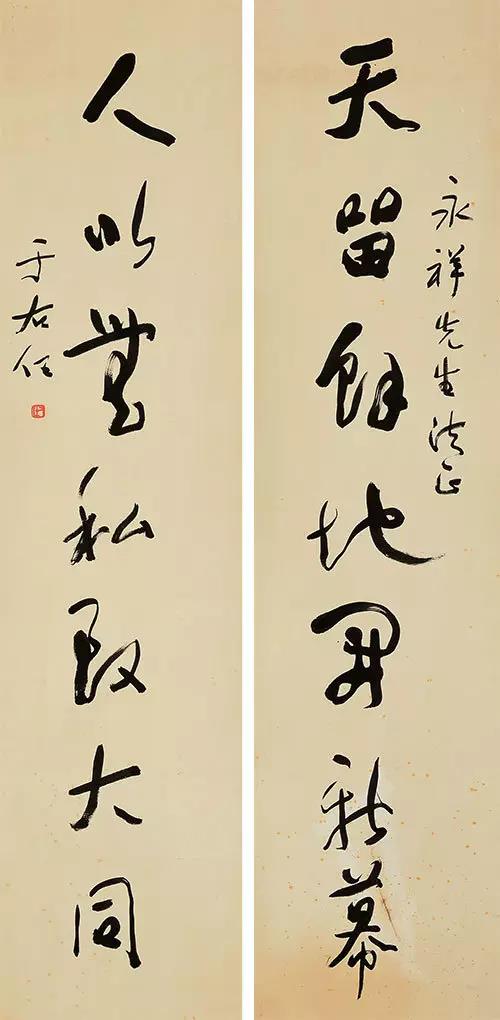 永祥先生法正
天留餘地開新幕
人以無私致大同
于右任